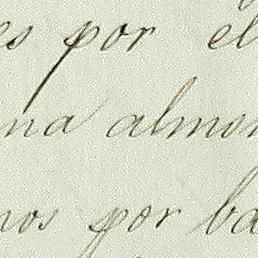 es por el
na almon
nos por ba